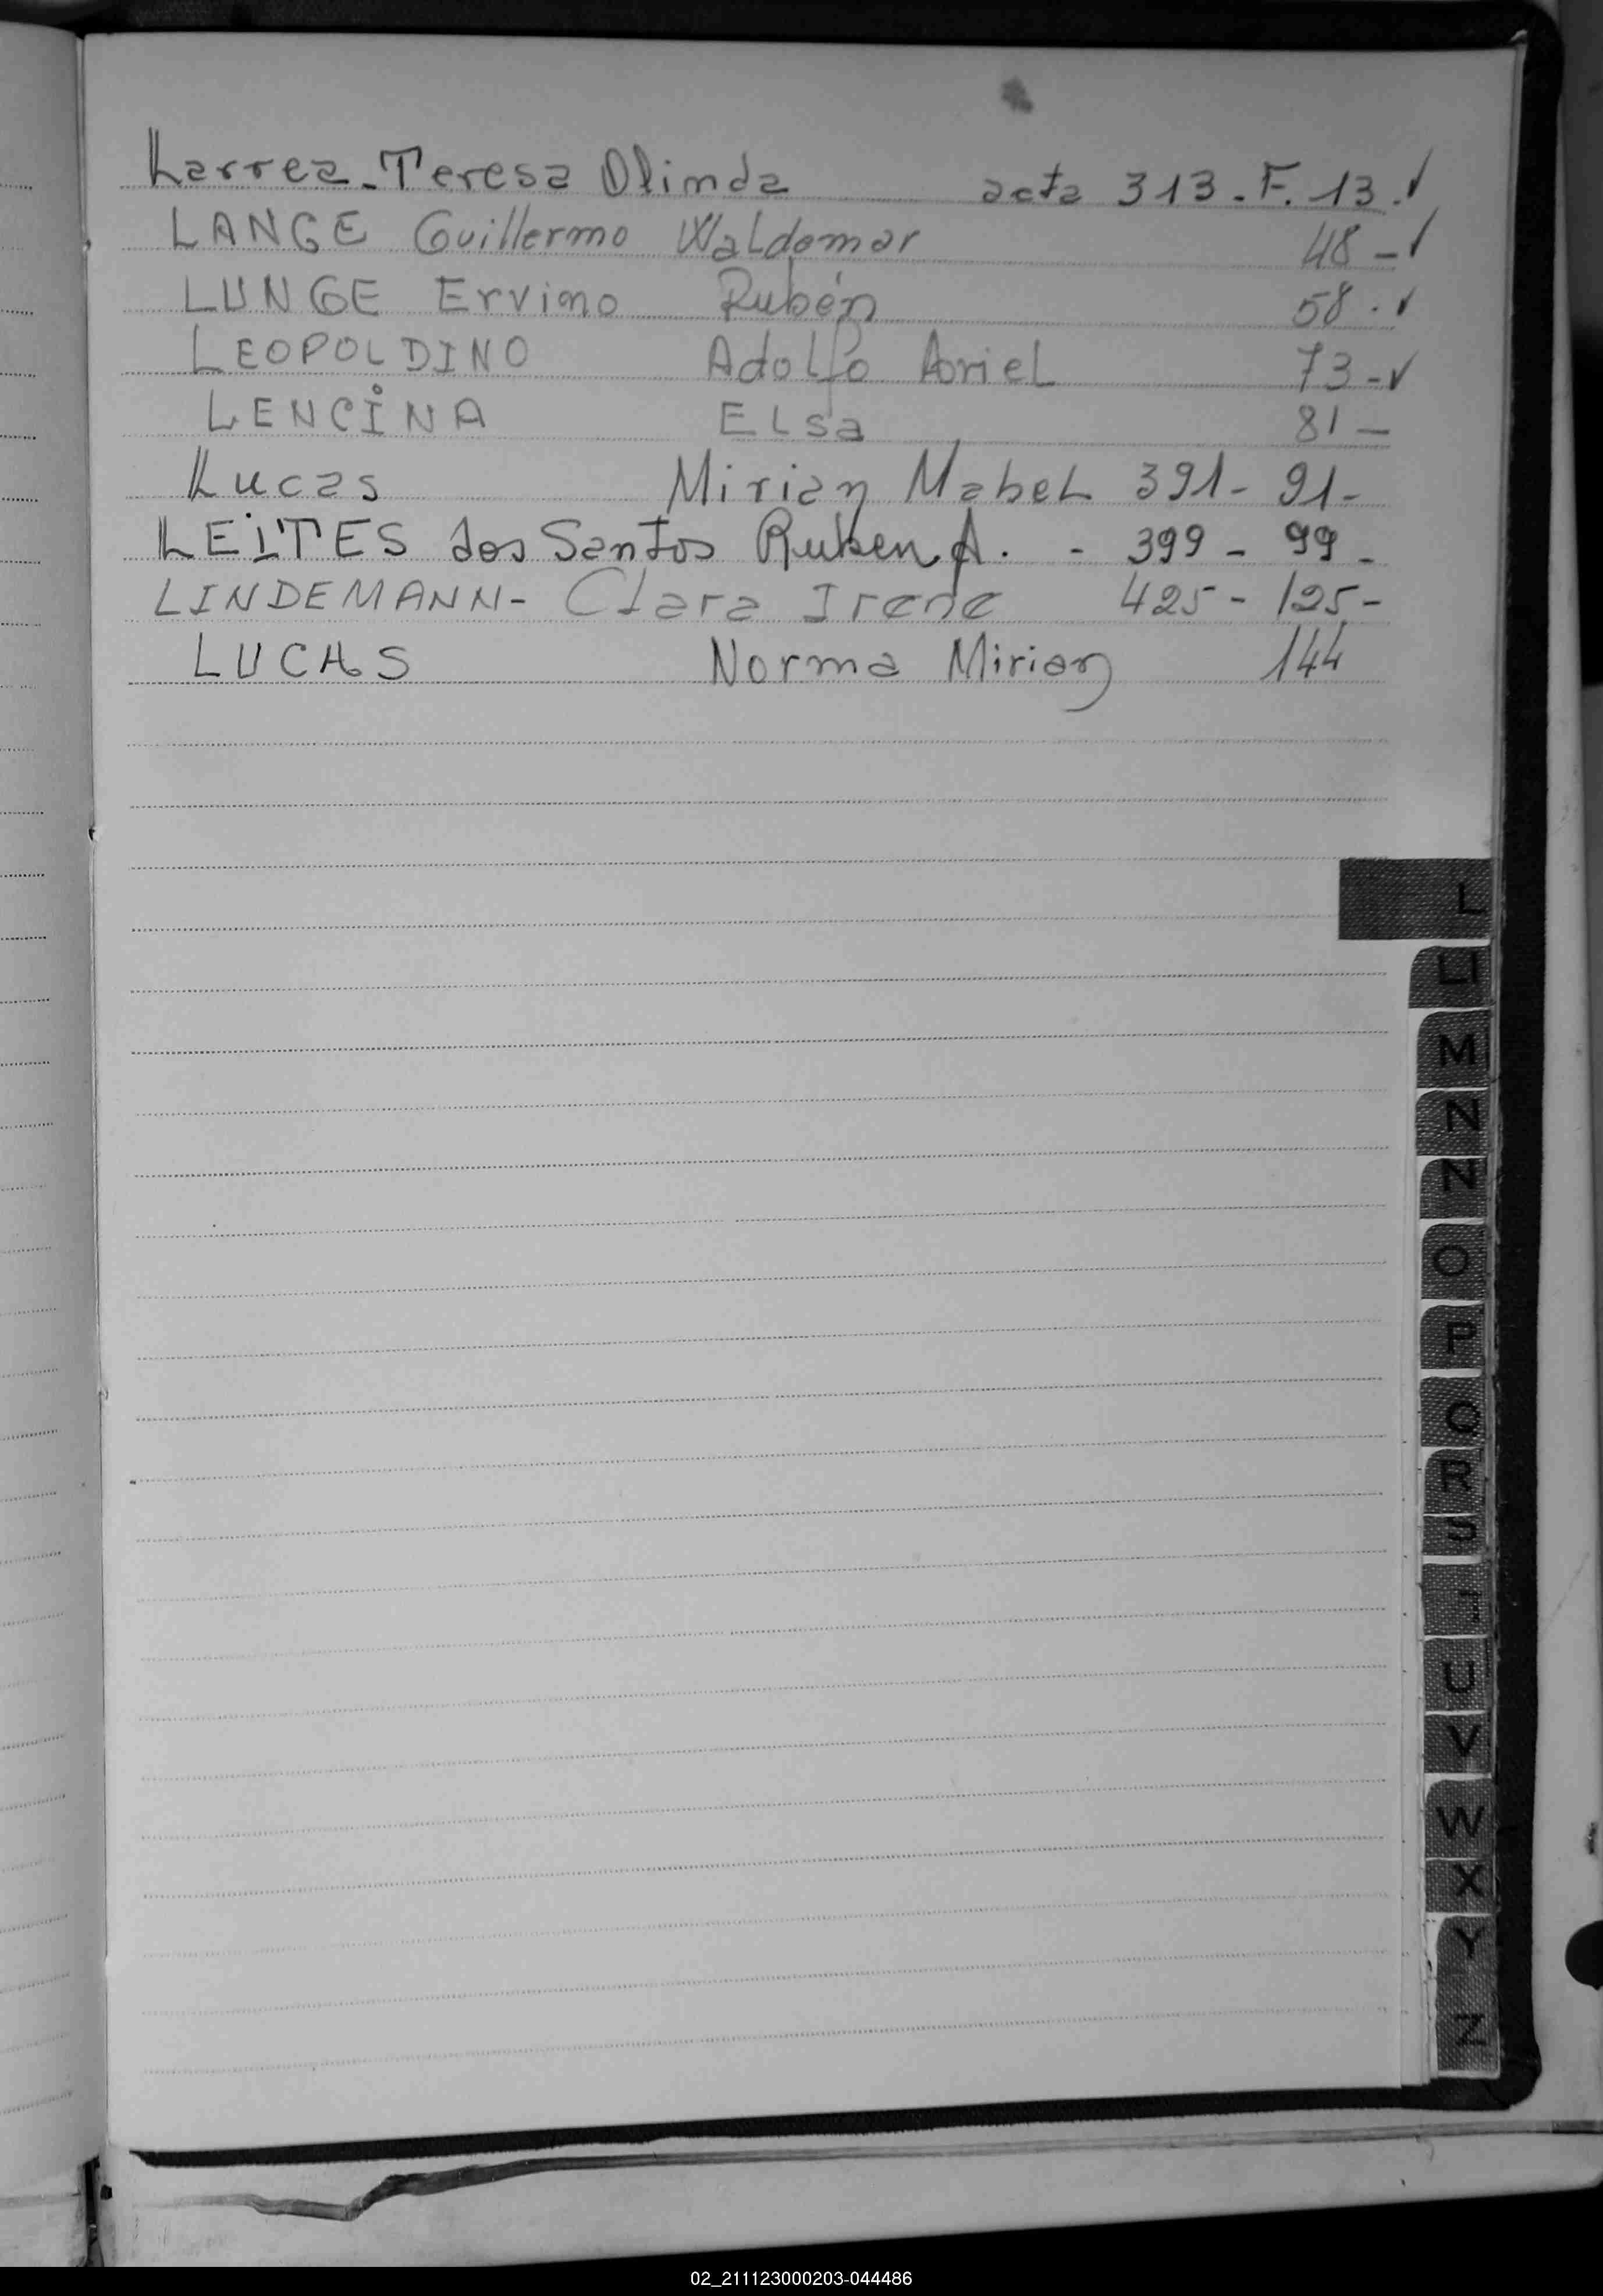 Larrea - Teresa Olinda acta 313 - F. 13. ✓
LANGE Guillermo Waldomar 48 - ✓
LUNGE Ervino Rubén 58 . ✓
LEOPOLDINO Adolfo Ariel 73 - ✓
LENCINA ELsa 81 -
Lucas Mirian MabeL 391 - 91 -
LEITES dos Santos Ruben A. - 399 - 99 -
LINDEMANN - Clara Irene 425 - 125 -
LUCAS Norma Mirian 144
L
LI
M
N
N
O
P
Q
R
S
U
V
W
X
Y
Z
02_211123000203-044486